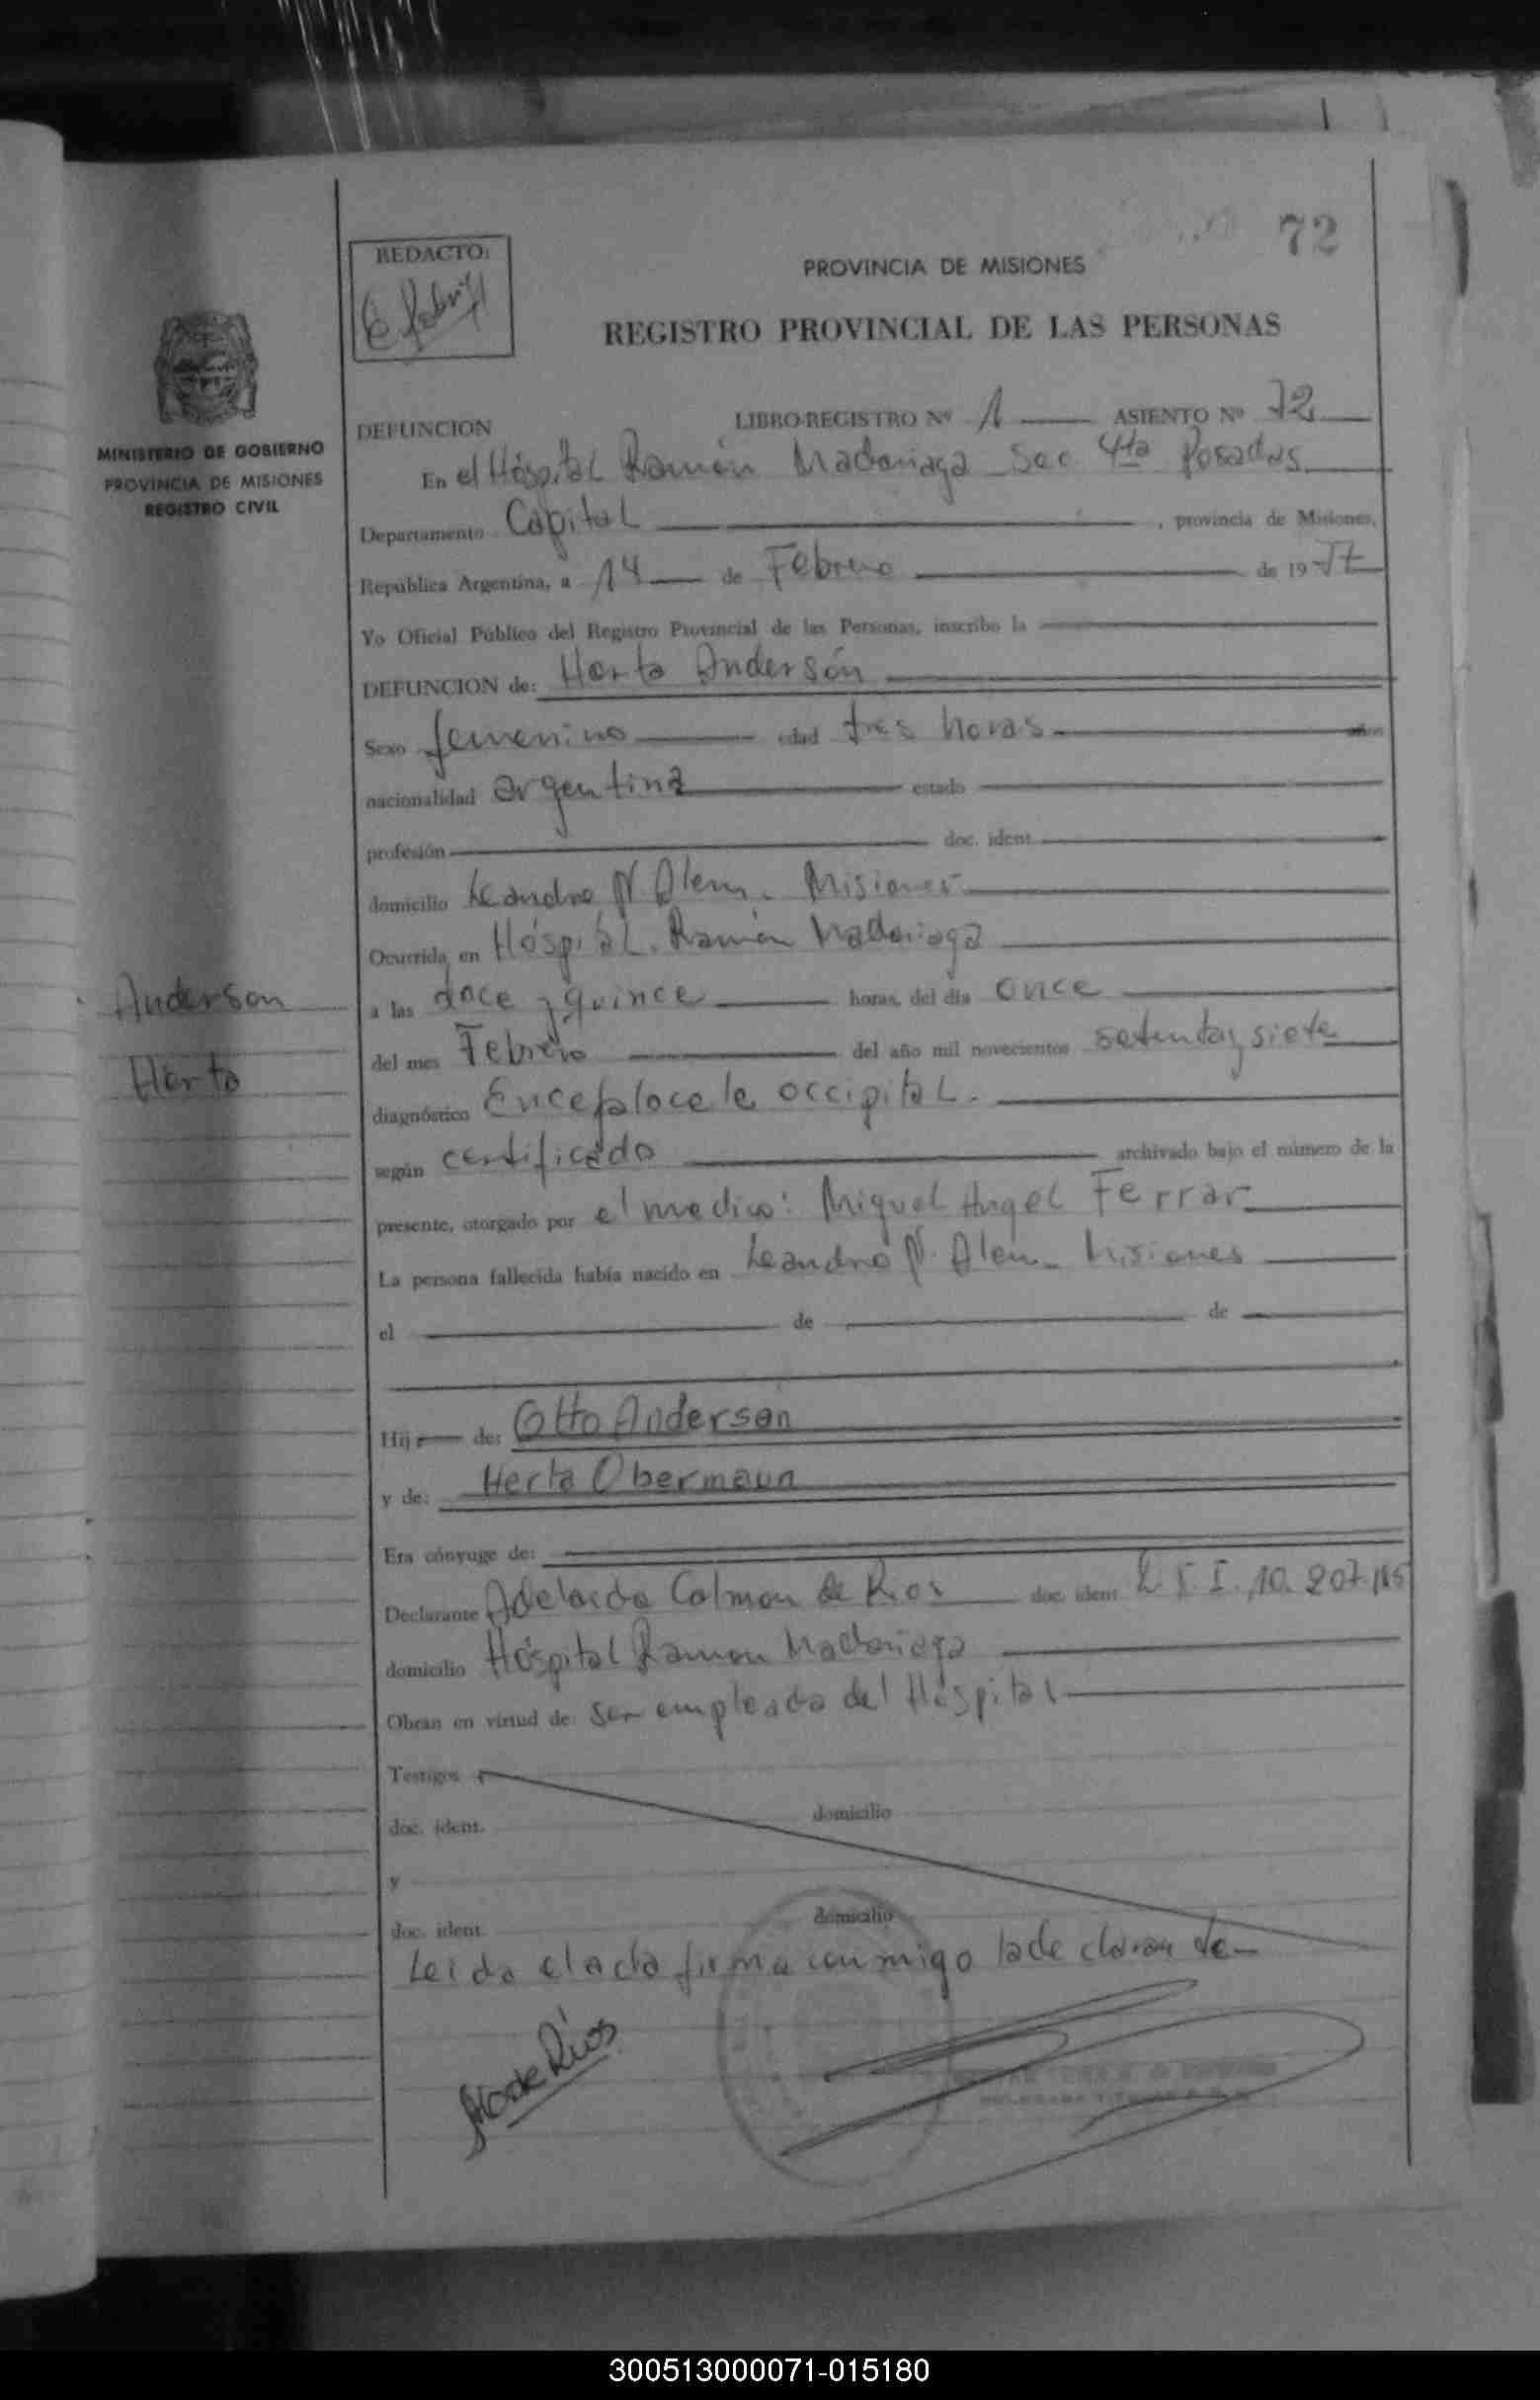 72
REDACTO:
PROVINCIA DE MISIONES
REGISTRO PROVINCIAL DE LAS PERSONAS
MINISTERIO DE GOBIERNO
PROVINCIA DE MISIONES
REGISTRO CIVIL
DEFUNCION LIBRO-REGISTRO Nº 1 ASIENTO Nº 72
En el Hóspital Ramón Madariaga Sec 4ta Posadas
Departamento Capital, provincia de Misiones,
República Argentina, a 14 de Febrero de 1977
Yo Oficial Público del Registro Provincial de las Personas, inscribo la
DEFUNCION de: Herta Andersón
Sexo femenino edad tres horas años
nacionalidad argentina estado
profesión doc. ident.
domicilio Leandro N. Alem. Misiones
Ocurrida en Hóspital. Ramón Madariaga
Anderson
a las doce y quince horas, del día once
Herta
del mes Febrero del año mil novecientos setenta y siete
diagnóstico Encefalocele occipital.
según certificado archivado bajo el número de la
presente, otorgado por el medico: Miguel Angel Ferrar
La persona fallecida había nacido en Leandro N. Alem. Misiones
el de de
Hij de: Otto Anderson
y de: Herta Obermaun
Era cónyuge de:
Declarante Adelaida Colman de Rios doc. ident.
domicilio Hóspital Ramon Madariaga
Obran en virtud de: ser empleada del Hóspital
Testigos
doc. ident. domicilio
y
doc. ident. domicilio
Leida el acta firma conmigo la declarante
de Ríos
300513000071-015180